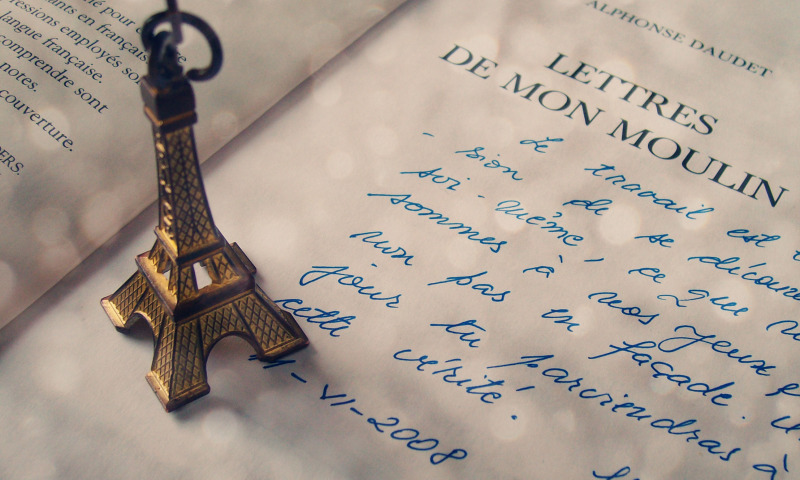 lé pour
ants en français
ressions employés so
langue française.
comprendre sont
notes.
couverture.
DERS.
ALPHONSE DAUDET
LETTRES
DE MON MOULIN
Le travail est
- sion de se découvrir
soi-même, - ce que
sommes à nos yeux e
non pas en façade. U
jour tu parviendras à
cette vérité.
11-VI-2008